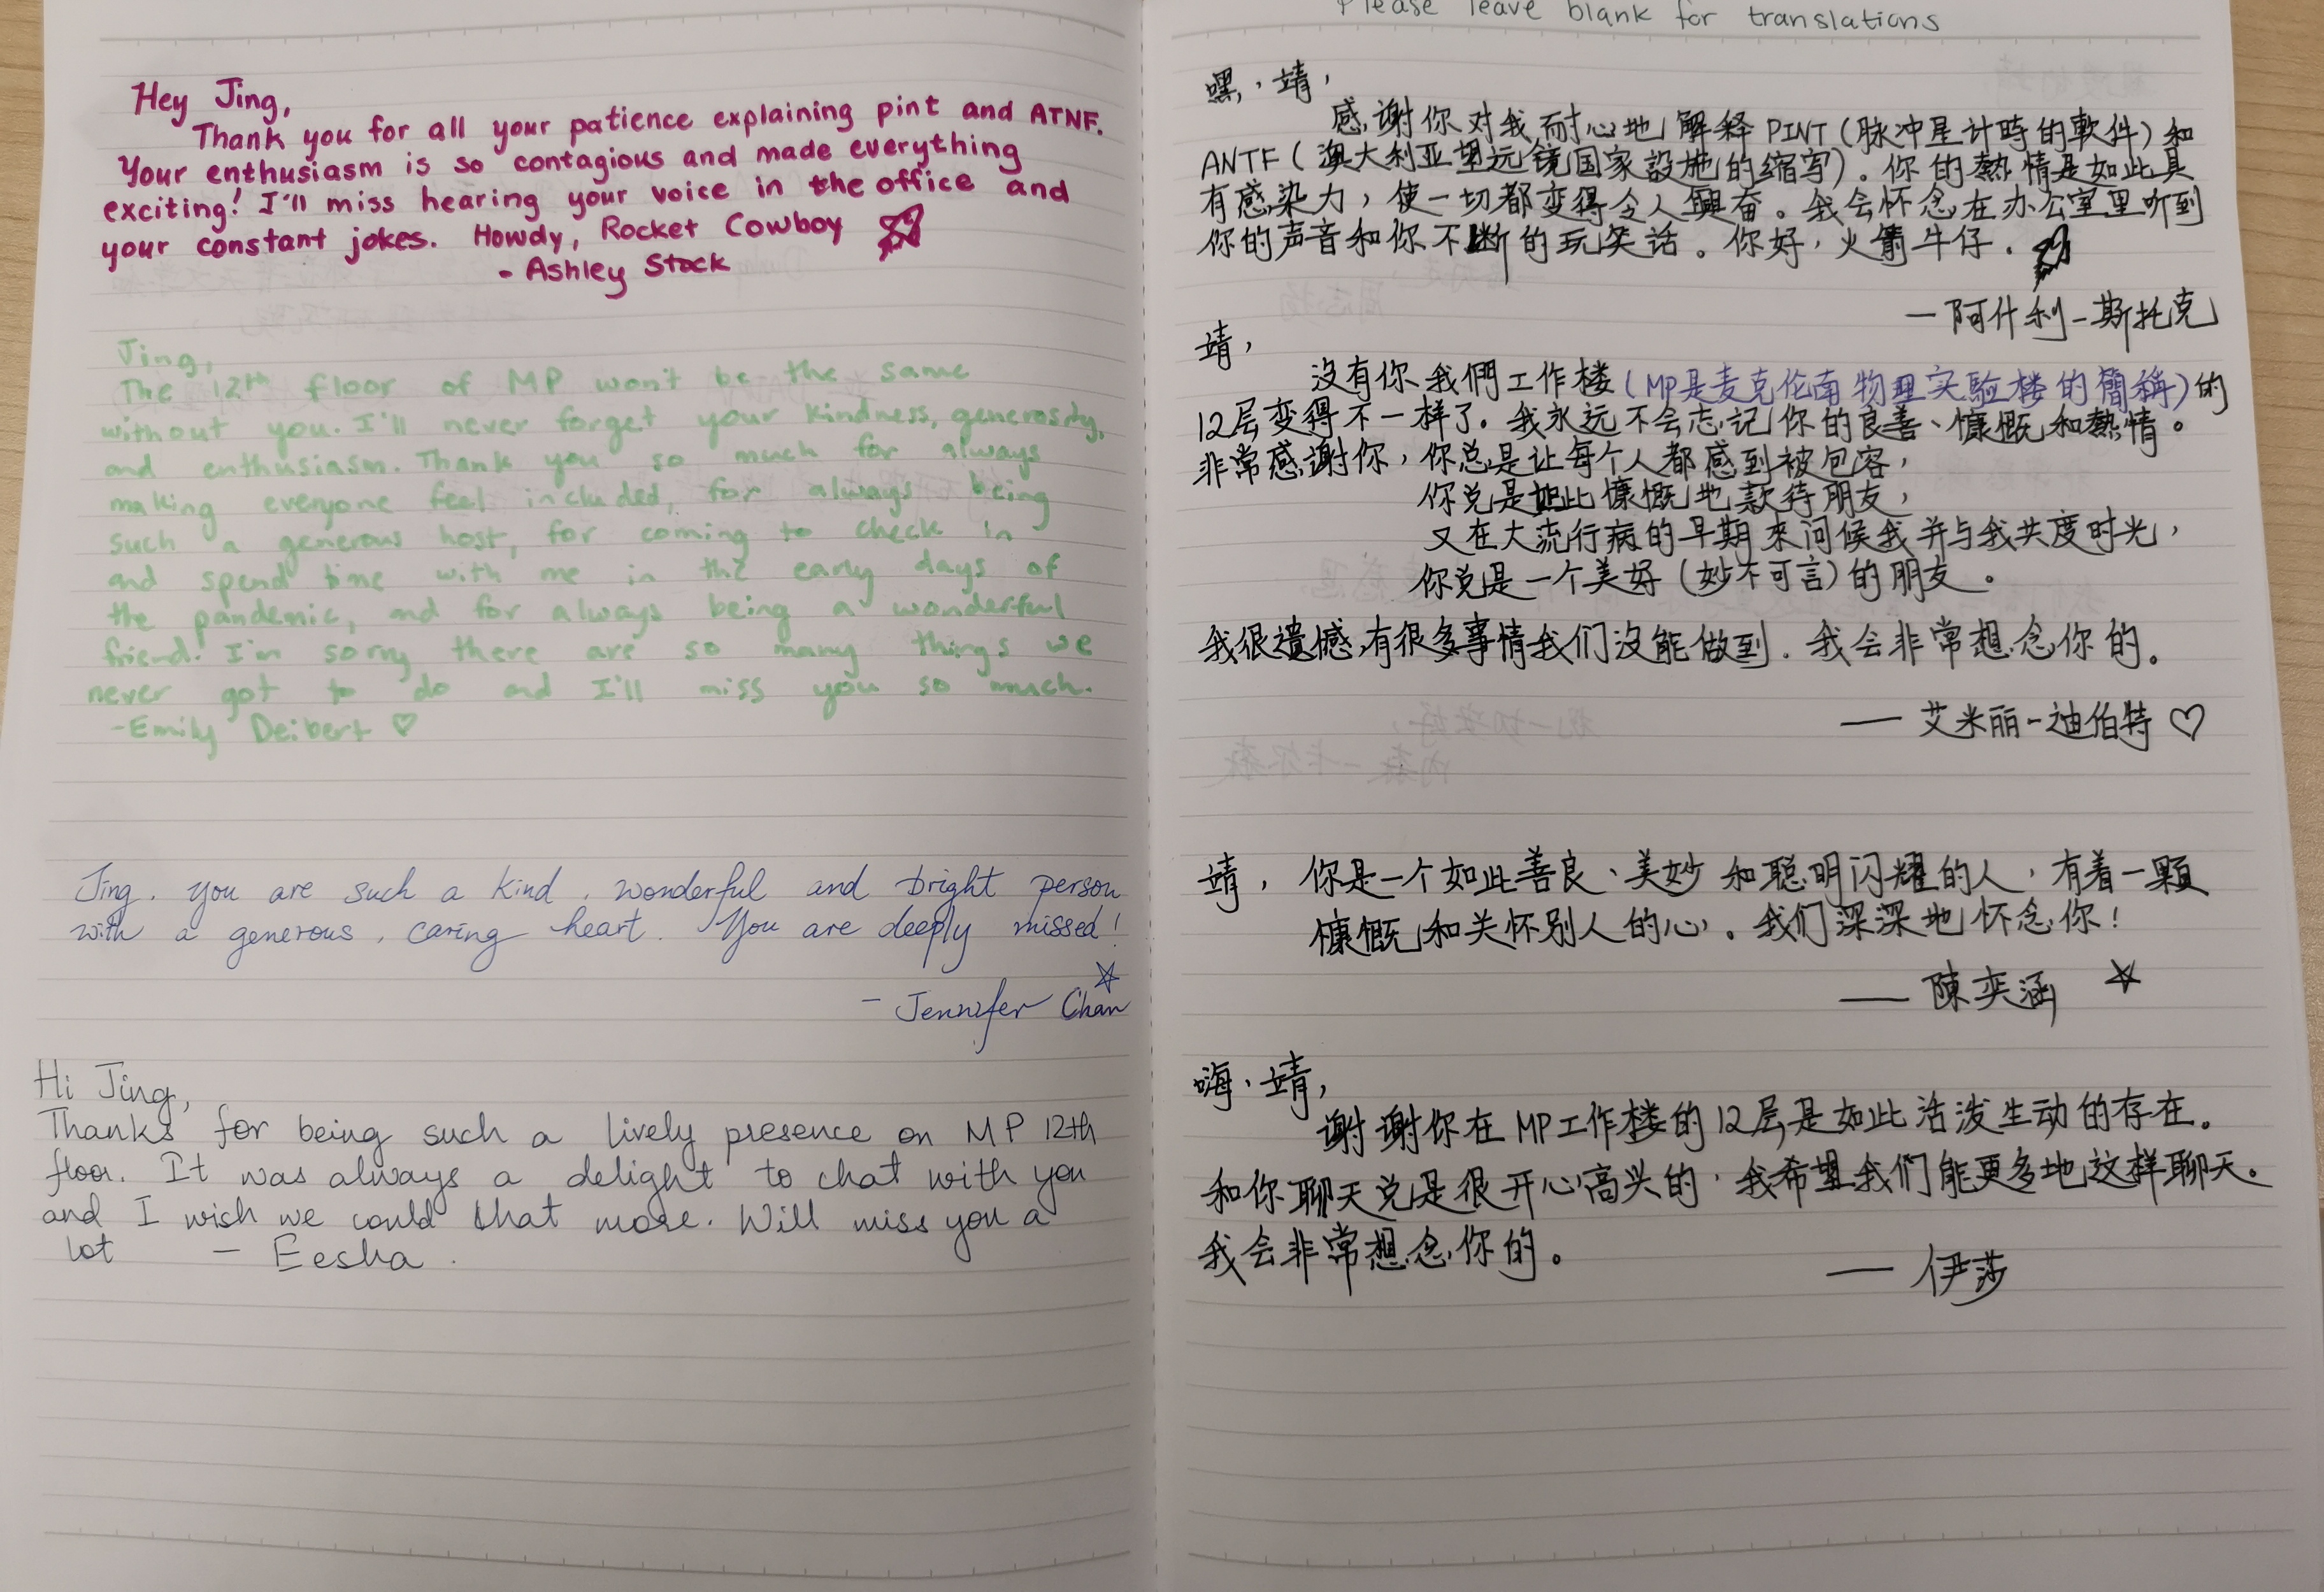 Hey Jing,
Thank you for all your patience explaining pint and ATNF.
Your enthusiasm is so contagious and made everything
exciting! I'll miss hearing your voice in the office and
your constant jokes. Howdy, Rocket Cowboy
- Ashley Stock
Jing,
The 12th floor of MP won't be the same
without you. I'll never forget your kindness, generosity,
and enthusiasm. Thank you so much for always
making everyone feel included, for always being
such a generous host, for coming to check in
and spend time with me in the early days of
the pandemic, and for always being a wonderful
friend. I'm sorry there are so many things we
never got to do and I'll miss you so much.
-Emily Deibert ♡
Jing. you are such a kind, wonderful and bright person
with a generous, caring heart. You are deeply missed!
☆
- Jennifer Chan
Hi Jing,
Thanks for being such a lively presence on MP 12th
floor. It was always a delight to chat with you
and I wish we could that more. Will miss you a
lot - Eesha.
Please leave blank for translations
嘿，靖，
感谢你对我耐心地解释PINT(脉冲星计時的軟件)和
ANTF(澳大利亚望远镜国家設施的缩写)。你的熱情是如此具
有感染力，使一切都变得令人興奋。我会怀念在办公室里听到
你的声音和你不断的玩笑话。你好，火箭牛仔.
—阿什利-斯托克
靖，
沒有你我們工作楼(MP是麦克伦南物理实驗楼的簡稱)的
12层变得不一样了。我永远不会忘记你的良善、慷慨和熱情。
非常感謝你，你总是让每个人都感到被包容，
你总是如此慷慨地款待朋友，
又在大流行病的早期來问候我并与我共度时光，
你总是一个美好(妙不可言)的朋友。
我很遗憾,有很多事情我们沒能做到.我会非常想念你的。
—— 艾米丽-迪伯特 ♡
靖，你是一个如此善良、美妙和聪明闪耀的人，有着一顆
慷慨和关怀别人的心。我们深深地怀念你！
—— 陳奕涵 ☆
嗨，靖，
谢谢你在MP工作楼的12层是如此活泼生动的存在。
和你聊天总是很开心高兴的，我希望我们能更多地这样聊天。
我会非常想念你的。
—— 伊莎